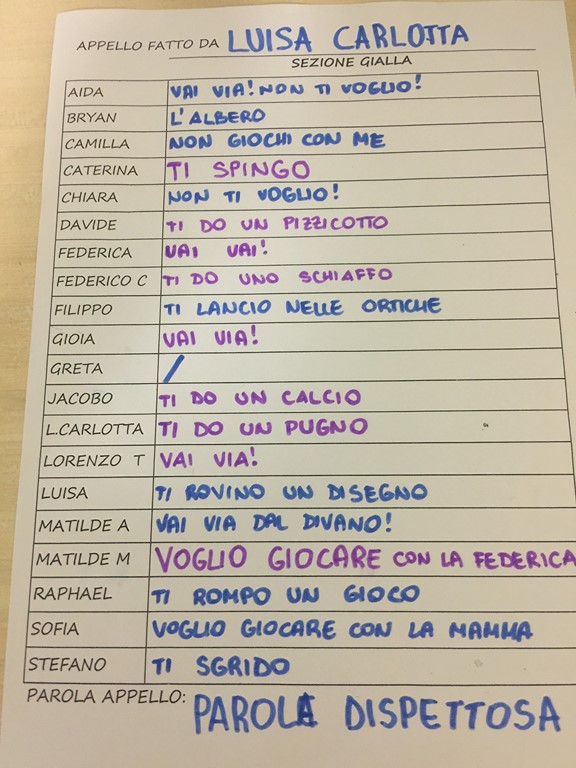 APPELLO FATTO DA LUISA CARLOTTA
SEZIONE GIALLA
AIDA VAI VIA! NON TI VOGLIO!
BRYAN L'ALBERO
CAMILLA NON GIOCHI CON ME
CATERINA TI SPINGO
CHIARA NON TI VOGLIO!
DAVIDE TI DO UN PIZZICOTTO
FEDERICA VAI VAI!
FEDERICO C TI DO UNO SCHIAFFO
FILIPPO TI LANCIO NELLE ORTICHE
GIOIA VAI VIA!
GRETA /
JACOBO TI DO UN CALCIO
L.CARLOTTA TI DO UN PUGNO
LORENZO T VAI VIA!
LUISA TI ROVINO UN DISEGNO
MATILDE A VAI VIA DAL DIVANO!
MATILDE M VOGLIO GIOCARE CON LA FEDERICA
RAPHAEL TI ROMPO UN GIOCO
SOFIA VOGLIO GIOCARE CON LA MAMMA
STEFANO TI SGRIDO
PAROLA APPELLO: PAROLA DISPETTOSA